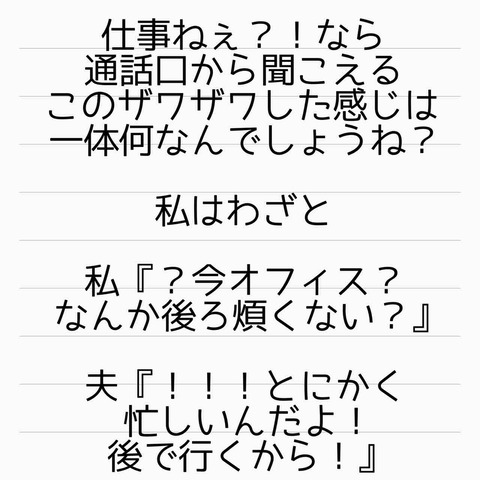 仕事ねぇ？！なら
通話口から聞こえる
このザワザワした感じは
一体何なんでしょうね？
私はわざと
私『？今オフィス？
なんか後ろ煩くない？』
夫『！！！とにかく
忙しいんだよ！
後で行くから！』